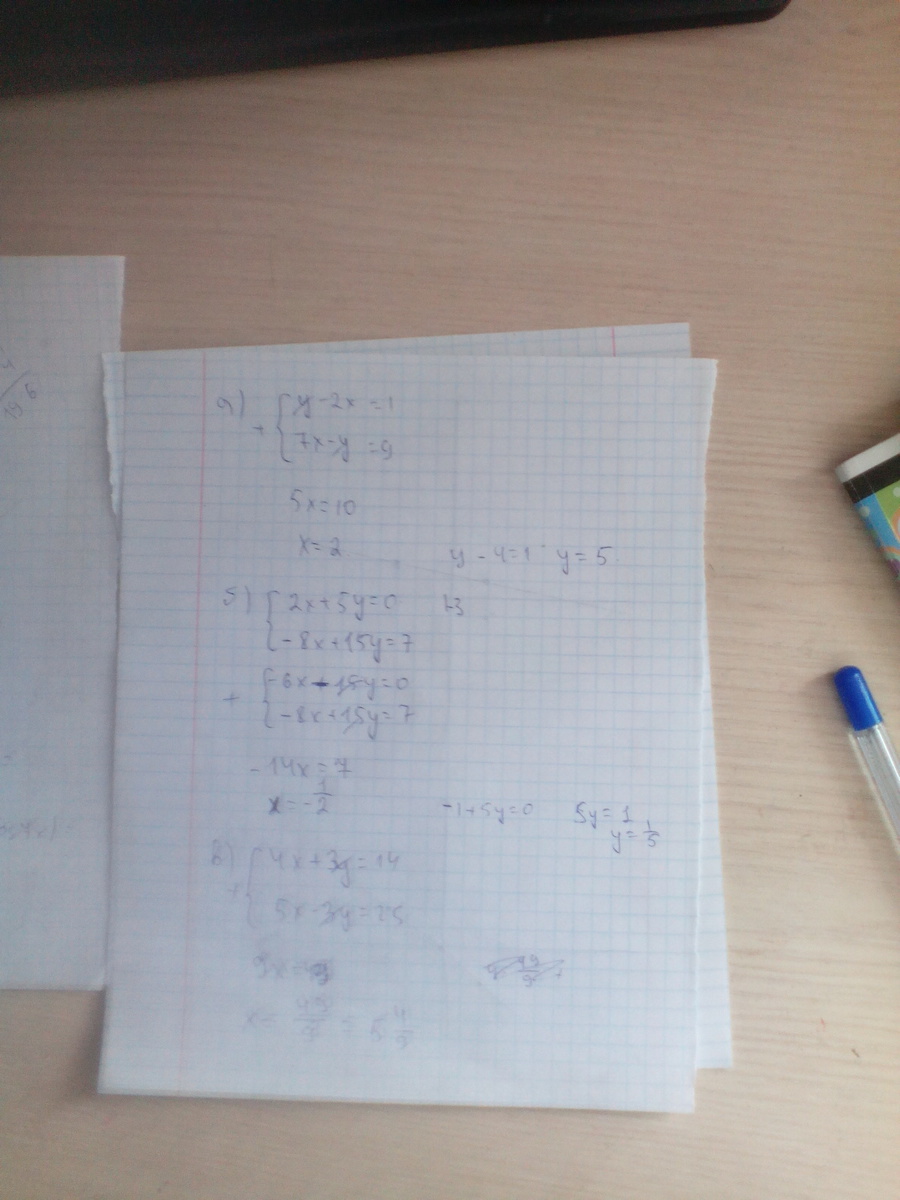 а) + { y - 2x = 1
7x - y = 9
5x = 10
x = 2 y - 4 = 1 y = 5
б) { 2x + 5y = 0 |·3
-8x + 15y = 7
+ { -6x - 15y = 0
-8x + 15y = 7
-14x = 7
x = -1/2 -1 + 5y = 0 5y = 1
y = 1/5
в) + { 4x + 3y = 14
5x - 3y = 25
9x
x =